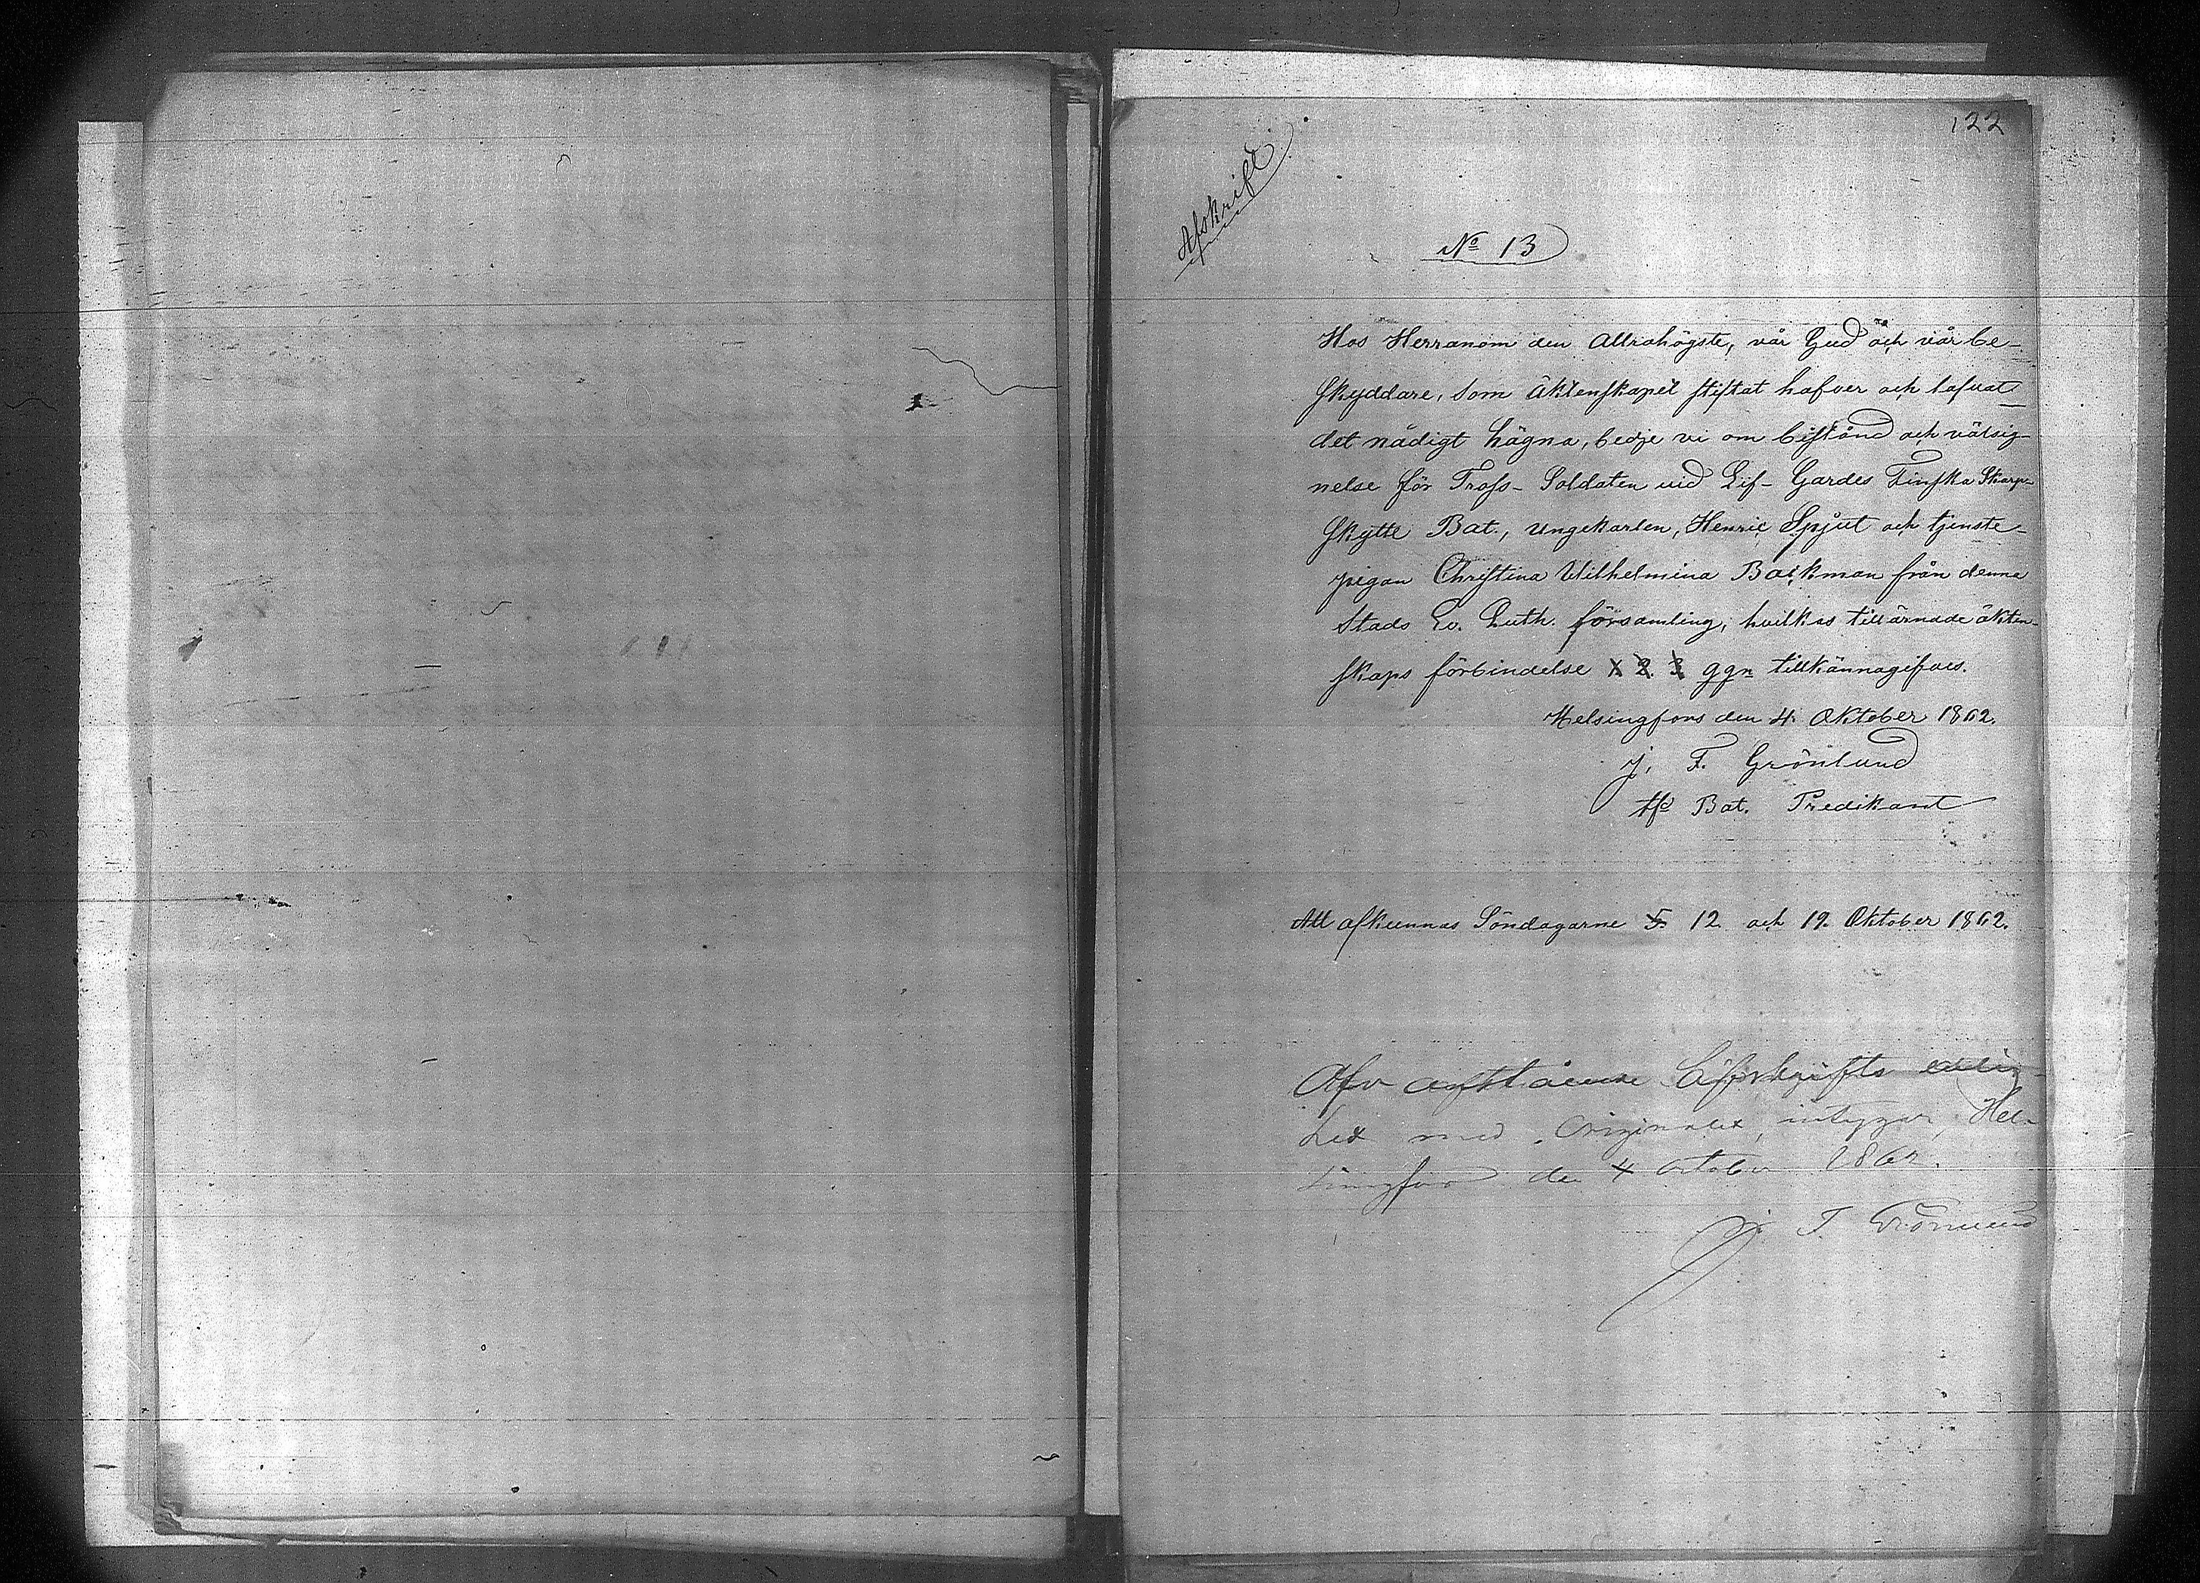 122
Afskrift.
No 13
Hos Herranom den Allrahögste, vår Gud och vår be-
skyddare, som äktenskapet stiftat hafver och lofvat
det nådigt hägna, bedje vi om bistånd och välsig-
nelse för Tross-Soldaten vid Lif-Gardes Finska Skarp-
skytte Bat., ungekarlen, Henric Spjut och tjenste-
pigan Christina Wilhelmina Backman från denna
Stads Ev. Luth. församling, hvilkas tillärnade äkten-
skaps förbindelse 1 2. 3 ggr. tillkännagifves.
Helsingfors den 4. Oktober 1862.
J. F. Grönlund
Bat. Predikant
Att afkunnas Söndagarne 5. 12. och 19. Oktober 1862.
Afskrifts
het med Originalet, intygar, Hel-
singfors den 4 October 1862.
J. F. Grönlund